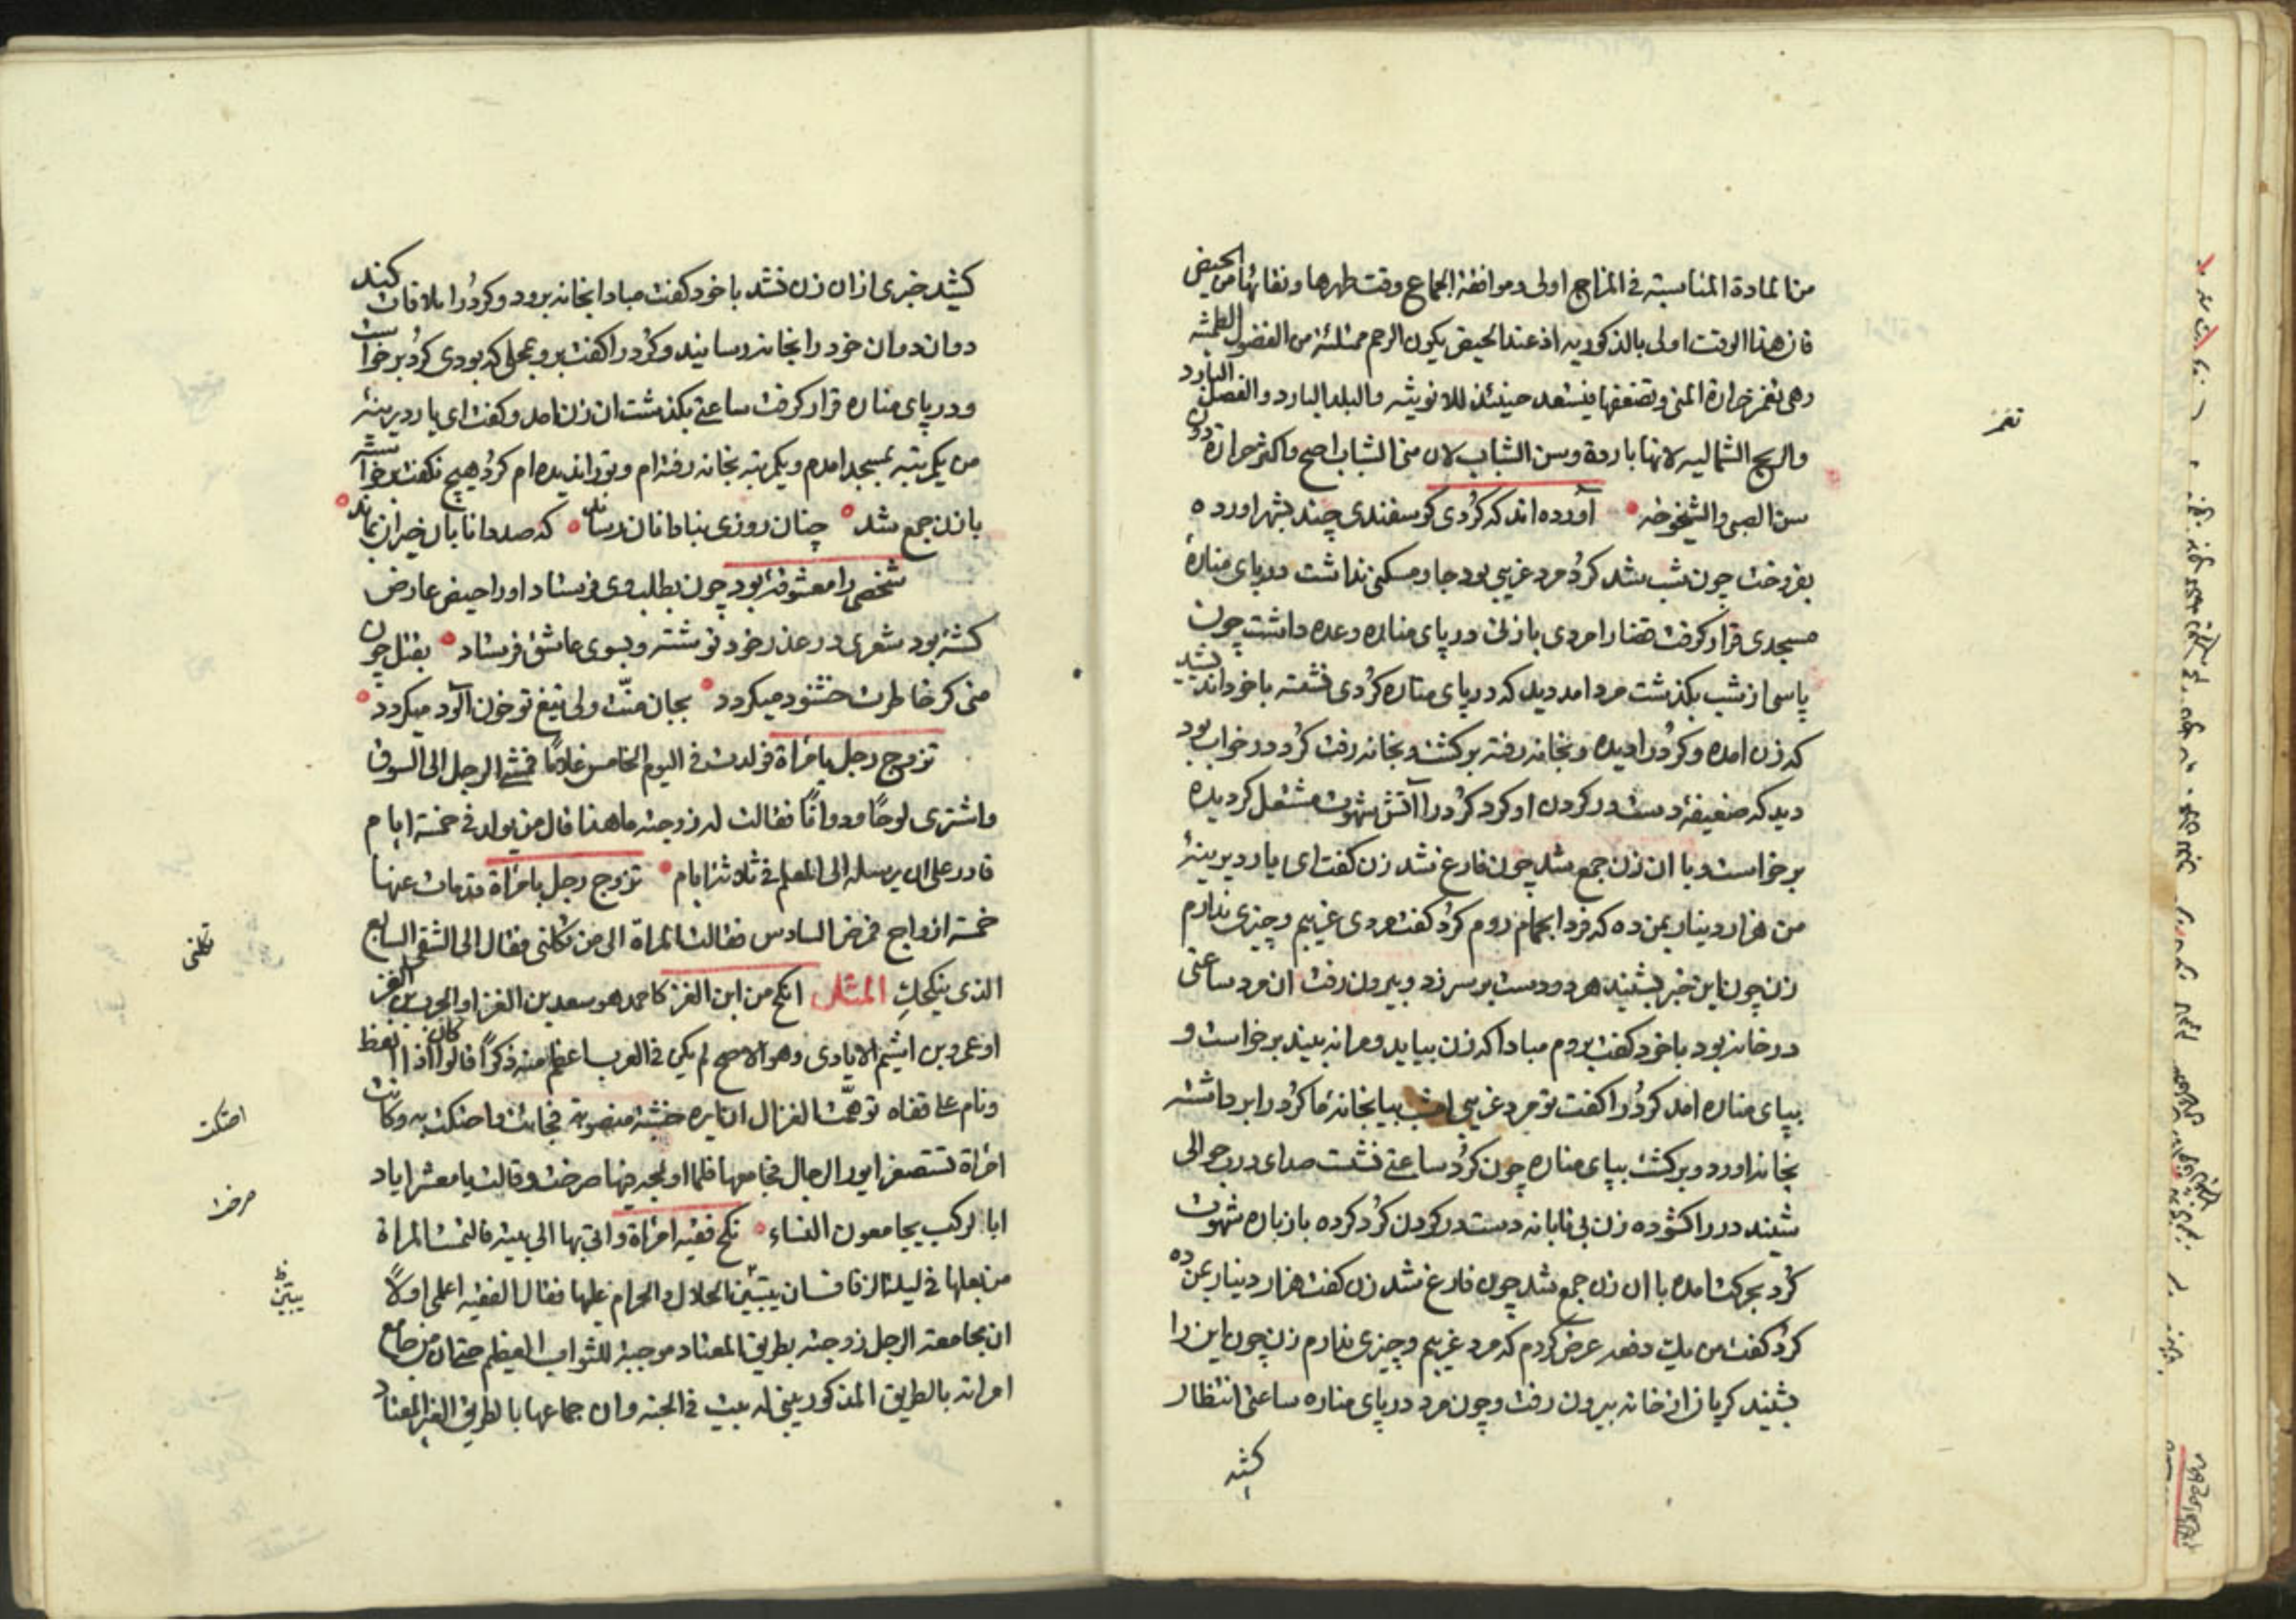 من المادة المناسبة فی المزاج اولی وموافقة الجماع وقت طهرها ونقائها من الحیض
فان هذا الوقت اولی بالذکوریه اذ عند الحیض یکون الرحم ممتلئة من الفضول الطمثیه
وهی تغمر حرارة المنی وتضعفها فیستعد حینئذ للانوثیه والبلد البارد والفصل البارد
والریح الشمالیه لانها باردة وسن الشباب لان منی الشباب اصح واکثر حرارة دون
سن الصبی والشیخوخه آورده اند که کُردی کوسفندی چند بشهر اورده
بفروخت چون شب شد کرُد مرد غریبی بود جا ومسکنی نداشت در پای منارهٔ
مسجدی قرار کرفت قضا را مردی با زنی در پای مناره وعده داشت چون
پاسی از شب بکذشت مرد امد دید که در پای مناره کُردی نشسته با خود اندیشید
که زن امده وکُرد را دیده وبخانه رفته برکشت وبخانه رفت کُرد در خواب بود
دید که ضعیفهٔ دست در کردن او کرد کُرد را آتش شهوت مشتعل کردیده
برخواست وبا ان زن جمع شد چون فارغ شد زن کفت ای یار دیرینهٔ
من هزار دینار بمن ده که فردا بحمام روم کرُد کفت مردی غریبم وچیزی ندارم
زن چون این خبر بشنید هر دو دست بر سر زد وبیرون رفت ان مرد ساعتی
در خانه بود با خود کفت بروم مبادا که زن بیاید ومرا نه بیند برخواست و
بپای مناره امد کرُد را کفت تو مرد غریبی امشب بیا بخانهٔ ما کرُد را برداشته
بخانه اورد وبرکشت بپای مناره چون کرُد ساعتی نشست صدای درب حوالی
شنید در را کشوده زن بی تابانه دست در کردن کُرد کرده باز باره شهوت
کُرد بحرکت امده با ان زن جمع شد چون فارغ شد زن کفت هزار دینار بمن ده
کرُد کفت من یک دفعه عرض کردم که مرد غریبم وچیزی ندارم زن چون این را
بشنید کریان از خانه بیرون رفت وچون مرد در پای مناره ساعتی انتظار
کشید
تغمر
کشید خبری از ان زن نشد با خود کفت مبادا بخانه برود وکرُد را ملاقات کند
دوان دوان خود را بخانه رسانید وکُرد را کفت برو بمحلی که بودی کرُد برخواست
ودر پای مناره قرار کرفت ساعتی بکذشت ان زن امد وکفت ای یار دیرینهٔ
من یکمرتبه بمسجد امدم ویکمرتبه بخانه رفته ام وتو را ندیده ام کرُد هیچ نکفت برخواست
با زن جمع شد چنان روزی بنادانان رساند که صد دانا بان حیران بماند
شخصی را معشوقهٔ بود چون بطلب وی فرستاد او را حیض عارض
کشته بود شعری در عذر خود نوشته وبسوی عاشق فرستاد بقتل چون
منی کر خاطرت خشنود میکردد بجان منّت ولی تیغ تو خون آلود میکردد
تزوج رجل بامرأة فولدت فی الیوم الخامس غلاماً فمشی الرجل الی السوق
واشتری لوحاً ودواتاً فقالت له زوجته ما هذا قال من یولد فی خمسة ایام
قادر علی ان یرسله الی المعلم فی ثلاثة ایام تزوج رجل بامرأة قد مات عنها
خمسة ازواج فمرض السادس فقالت المراة الی من تکلنی فقال الی الشقی السابع
الذی ینکحکِ المثل انکح من ابن الغز کاحمد هو سعد بن الغز او الحرث بن الغز
او عمرو بن اشیم الایادی وهو الاصح لم یکن فی العرب اعظم منه ذکراً قالوا کان اذا انعظ
ونام علی قفاه توهمّت الغزال ان ایره خشبة منصوبة فجائت فاحتکت به وکانت
امرأة تستصغر ایور الرجال فجامعها فلما اولجه فیها صرخت وقالت یا معشر ایاد
ابا الرکب یجامعون النساء نکح فقیه امرأة واتی بها الی بیته فالتمست المراة
من بعلها فی لیلة الزفاف ان یبیّن الحلال والحرام علیها فقال الفقیه اعلمی اولاً
ان مجامعة الرجل زوجته بطریق المعتاد موجبة للثواب العظیم حتی ان من جامع
امراته بالطریق المذکور یبنی له بیت فی الجنه وان جماعها بالطریق الغیر المعتاد
تکلنی
احتکت
صرخت
یبیّن